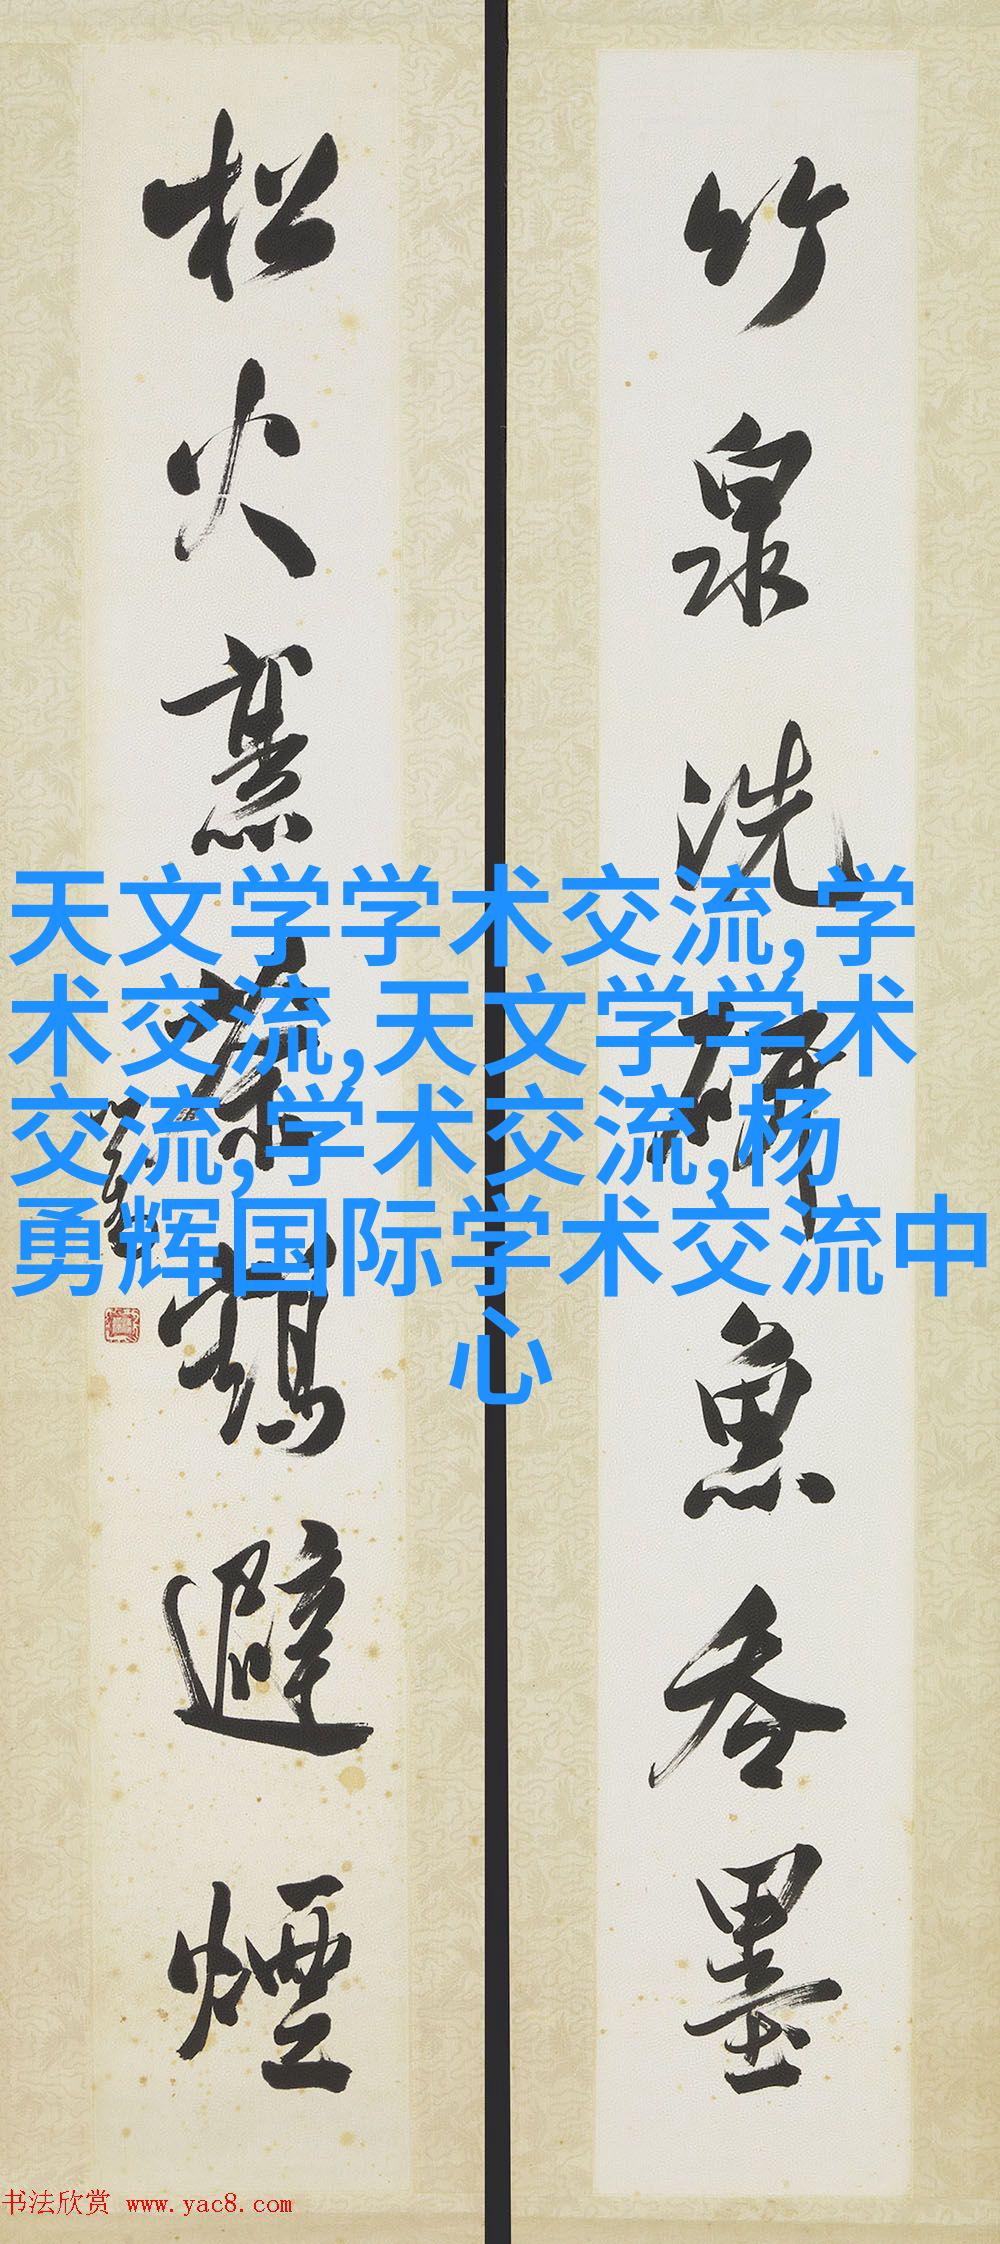 竹泉洗研魚吞墨
松火烹茶鶴避煙
天文学学术交流,学
术交流,天文学学术
交流,学术交流,杨
勇辉国际学术交流中
心
书法欣赏 www.yac8.com